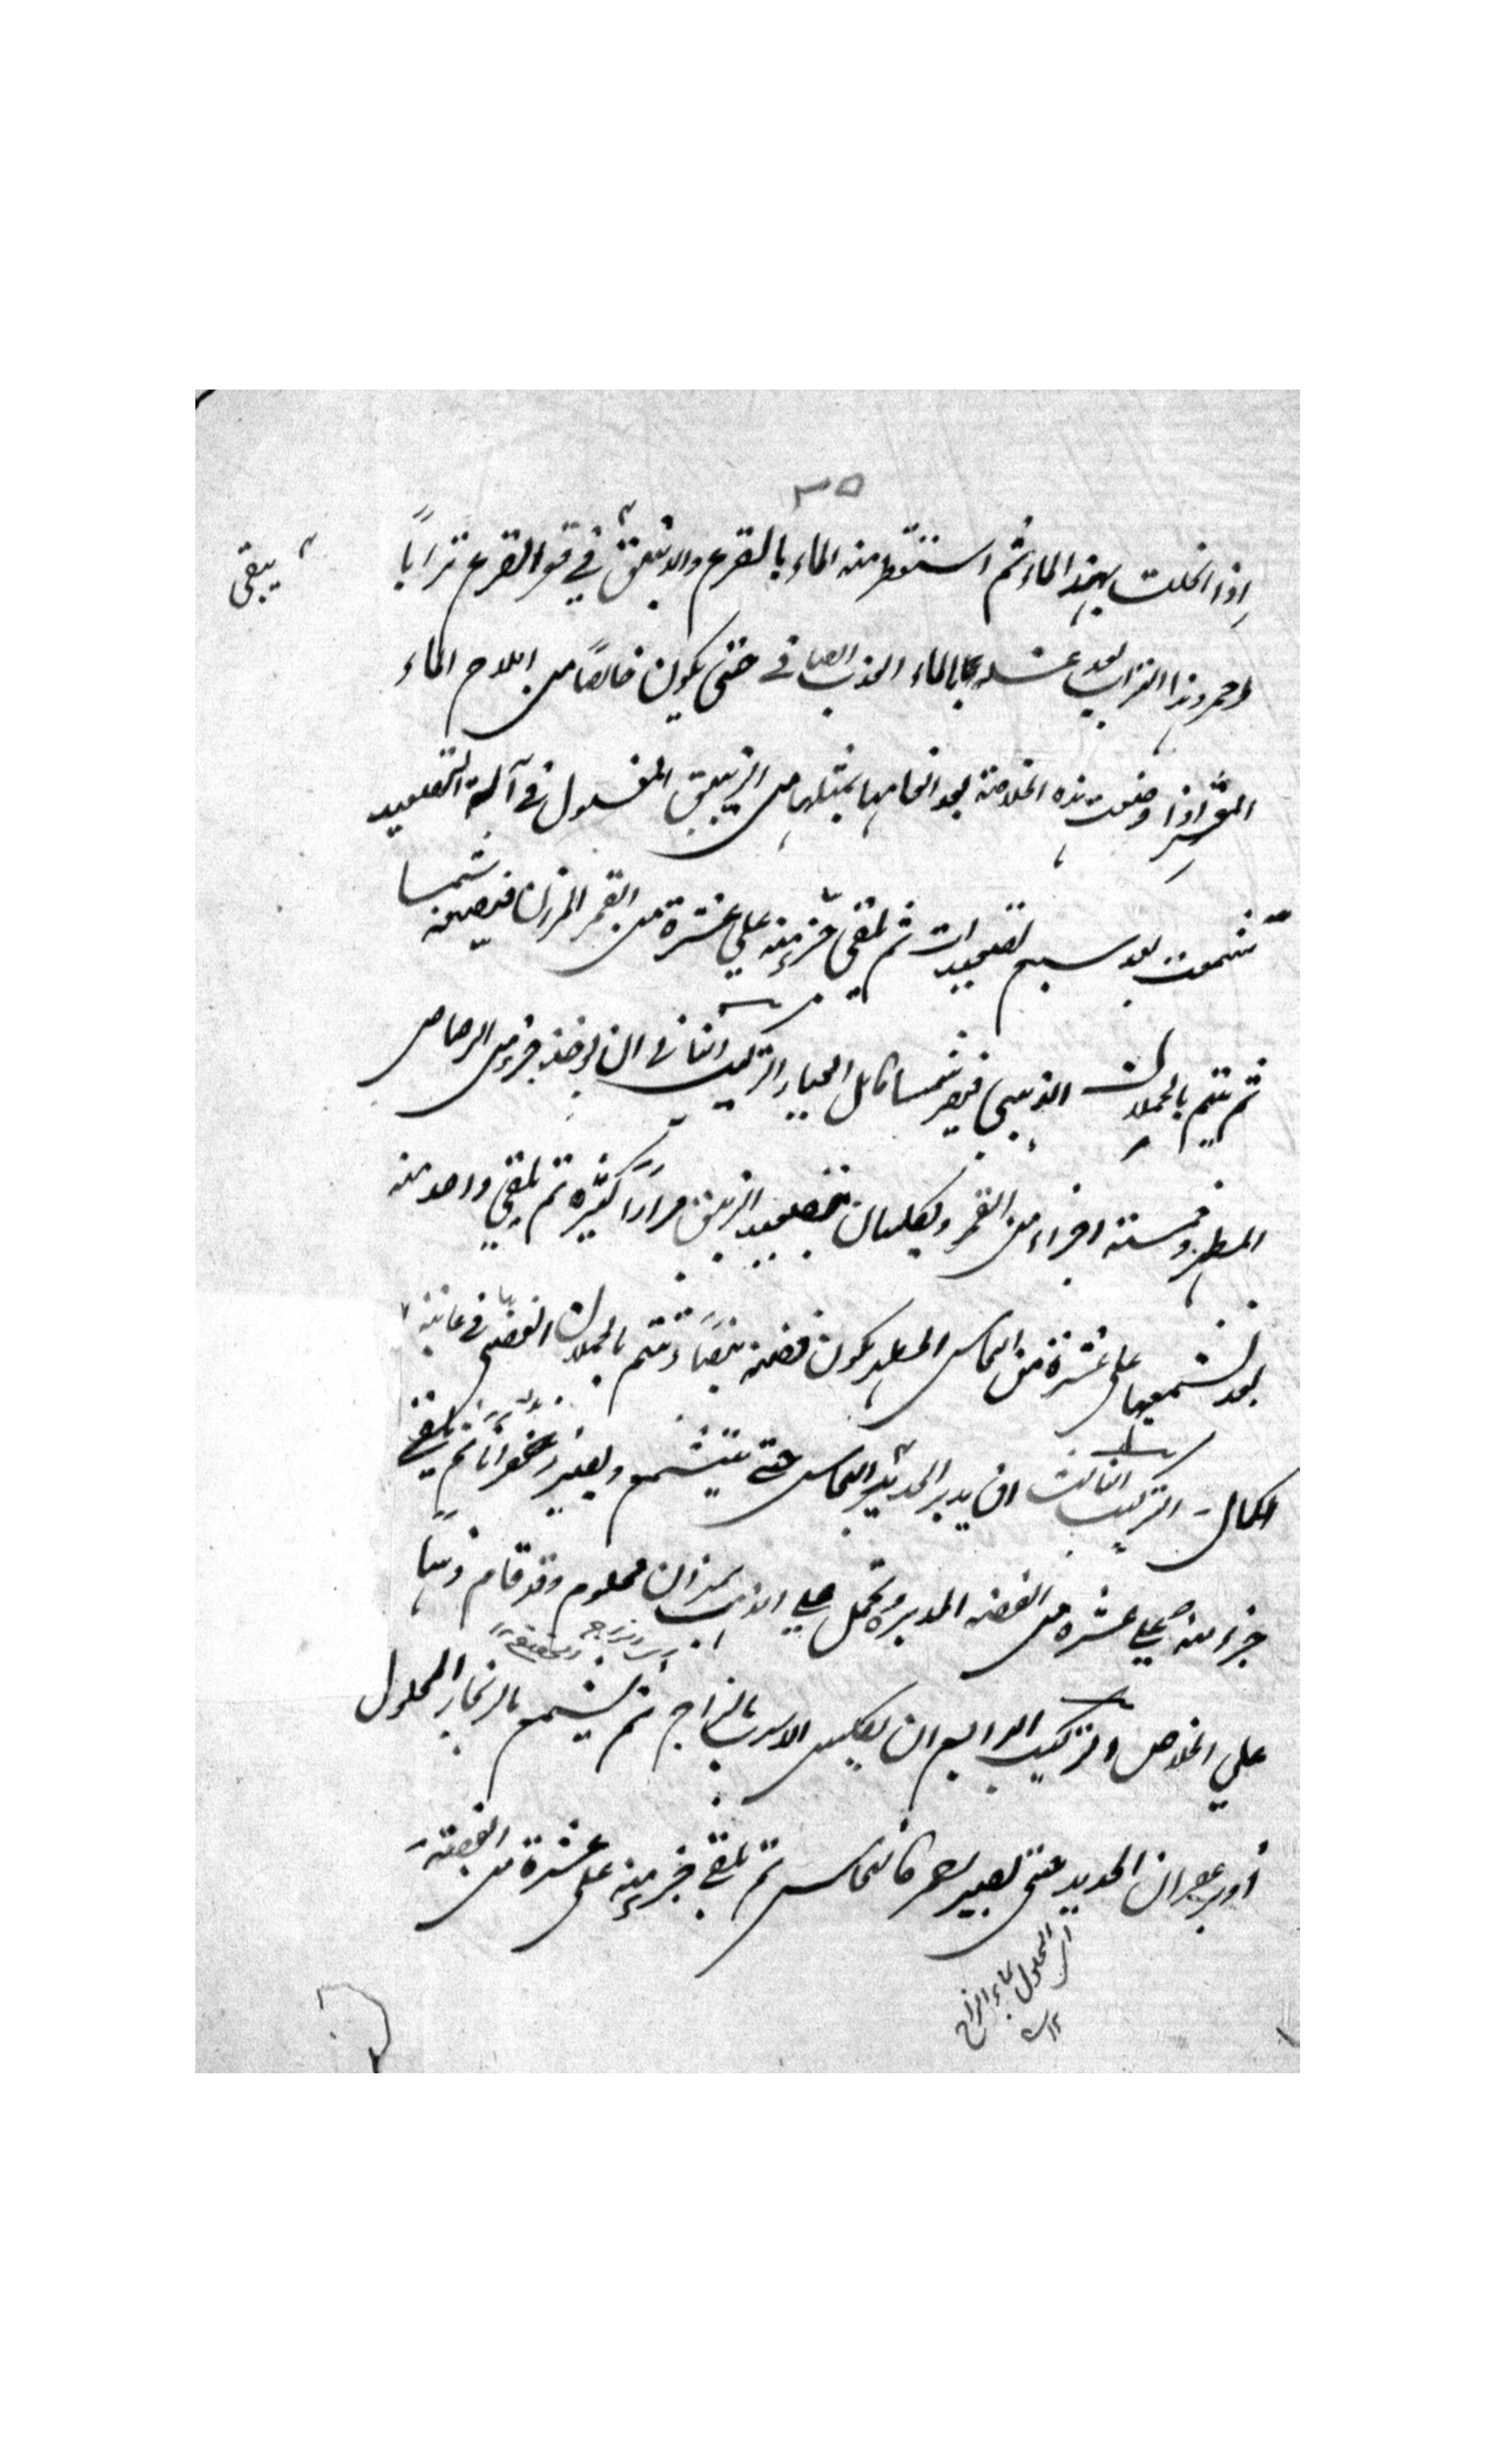 ٣٥
اذا انحلت بهذا الماء ثم استقطر منه الماء بالقرع والانبيق في قعر القرع ترابا
يبقى
احمر وهذا التراب بعد غسله بالماء العذب الصافي حتى يكون خالصا من املاح الماء
اذا وضعت هذه الخلاصة بعد الغامها بمثلها من الزيبق المغسول في آلة التصعيد
تشمعت بعد سبع تصعيدات ثم يلقى جزء منه علي عشرة من القمر المرزن فيصير شمسا
ثم يتمم بالحملان الذهبي فيصير شمسا كامل العيار التركيب الثاني ان يوخذ جزء من الرصاص
المطهر وستة اجزاء من القمر ويكلسان بتصعيد الزيبق مرارا كثيرة ثم يلقي واحد منه
بعد تشميعها على عشرة من النحاس المطهر يكون فضة بيضاء وتتم بالحملان الفضي في غاية
الكمال التركيب الثالث ان يدبر الحديد النحاس حتى يتشمع ويصير زعفرانا ثم يلقي
جزء منه علي عشرة من الفضة المدبرة وتحمل علي الذهب بميزان معلوم وقد قام ذهبا
علي الخلاص التركيب الرابع ان يكلس الاسرب بالزاج ثم يشمع بالزنجار المحلول
او بزعفران الحديد حتى يصير احمر كالنحاس ثم يلقي جزء منه على عشرة من الفضة
اي المحلول بماء الزاج
١٢